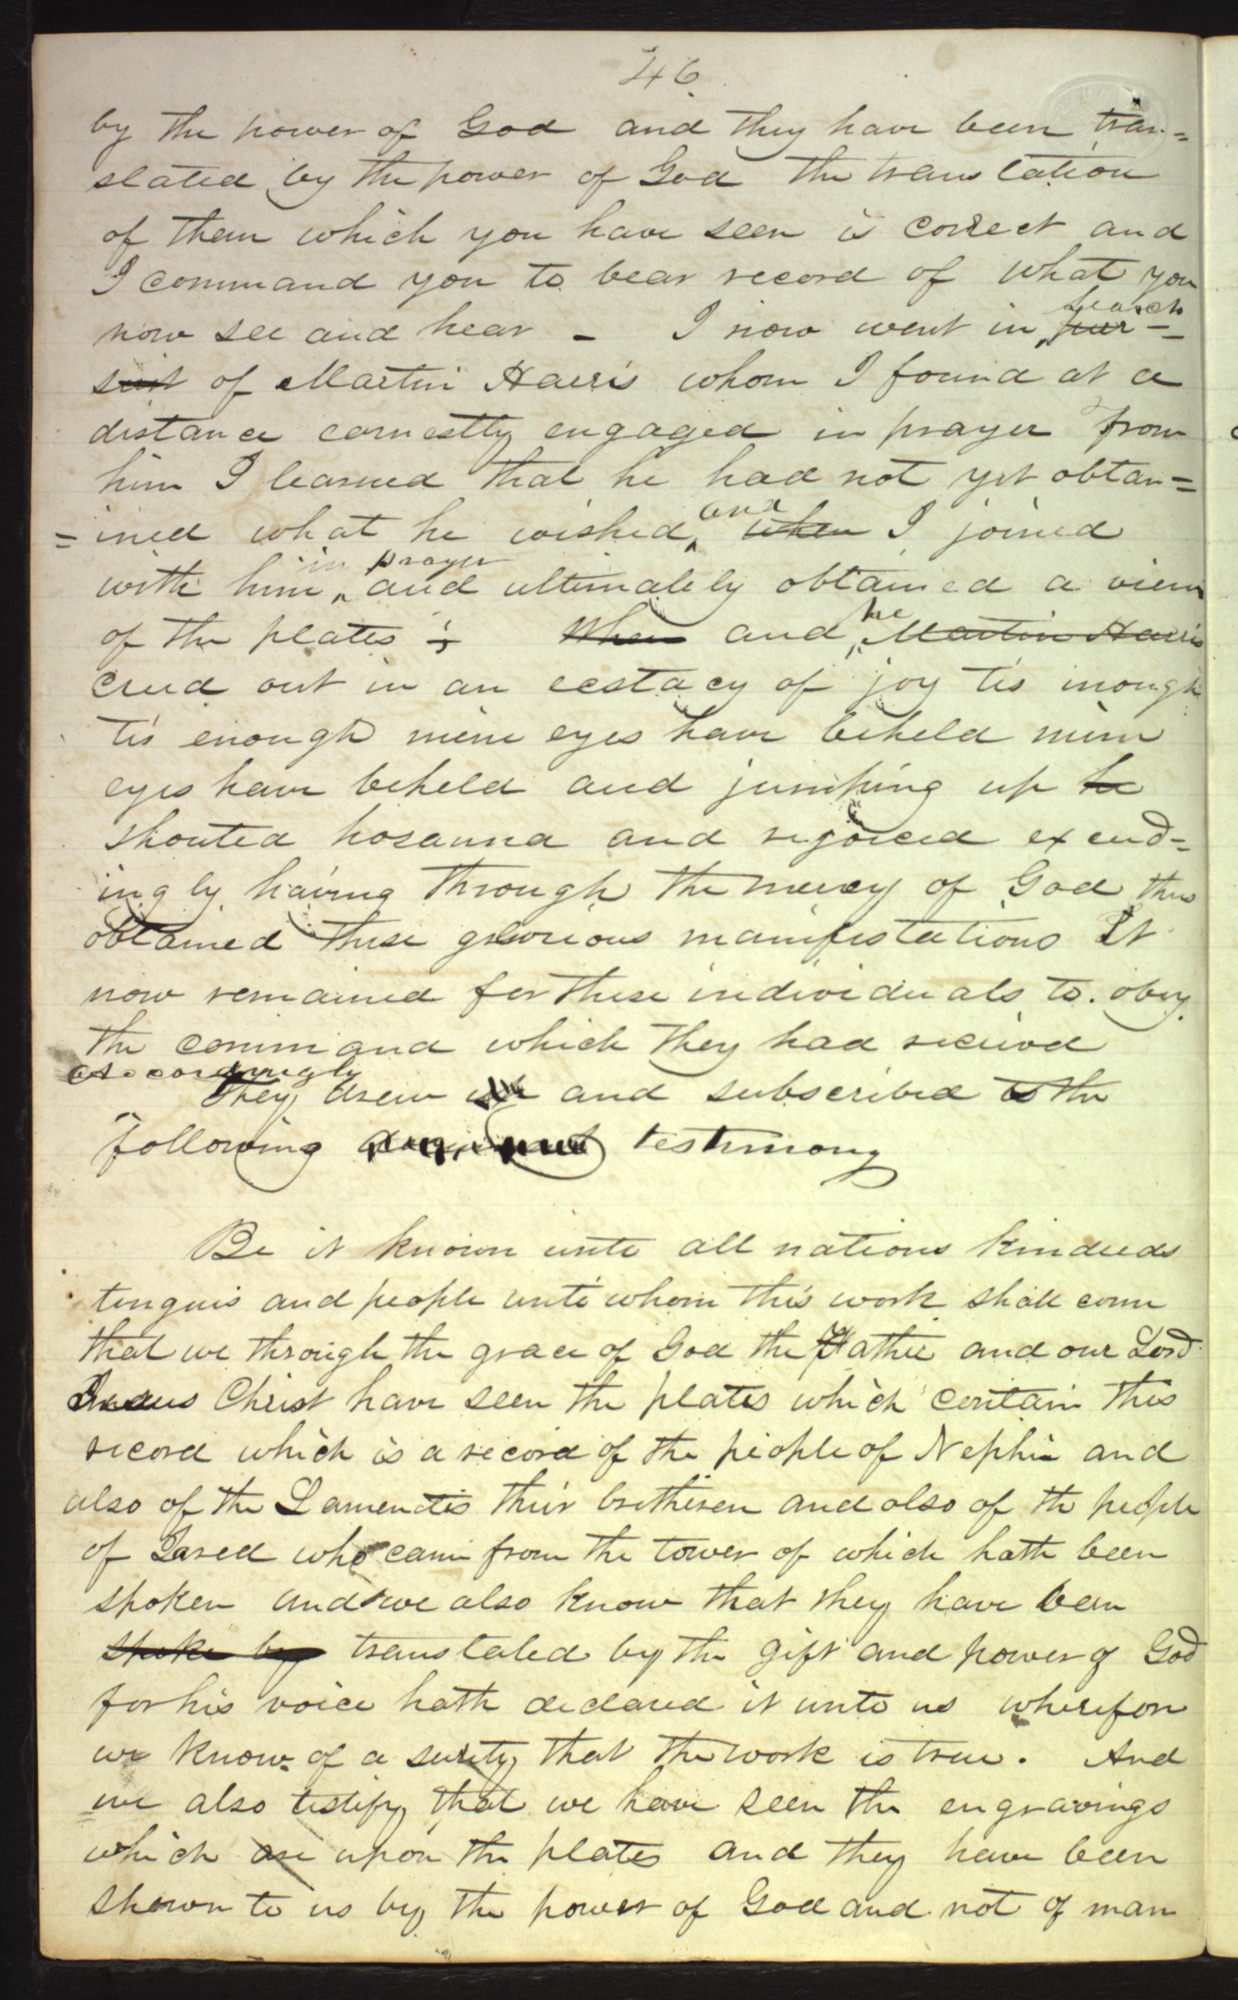 46
by the power of God and they have been tran=
slated by the power of God the translation
of them which you have seen is correct and
I command you to bear record of what you
search
now see and hear - I now went in pur-
suit of Martin Harris whom I found at a
distance earnestly engaged in prayer from
him I learned that he had not yet obtan=
and
=ined what he wished, when I joined
in prayer
with him, and ultimately obtained a view
he
of the plates ; When and Martin Harris
cried out in an ecstacy of joy tis inough
tis enough mine eyes have beheld mine
eyes have beheld and jumping up he
shouted hosanna and rejoiced exceed=
ingly having through the mercy of God thus
obtained these glorious manifestations It
now remained for these individuals to obey
the command which they had recieved
accordingly
they drew up and subscribed to the
following testimony
Be it known unto all nations kindreds
tongues and people unto whom this work shall come
that we through the grace of God the Father and our Lord
Jesus Christ have seen the plates which contain this
record which is a record of the people of Nephi and
also of the Lamenites their bretheren and also of the people
of Jared who came from the tower of which hath been
spoken and we also know that they have been
spoke by translated by the gift and power of God
for his voice hath declared it unto us wherefore
we know of a surity that the work is true. And
we also testify that we have seen the engravings
which are upon the plates and they have been
shown to us by the power of God and not of man